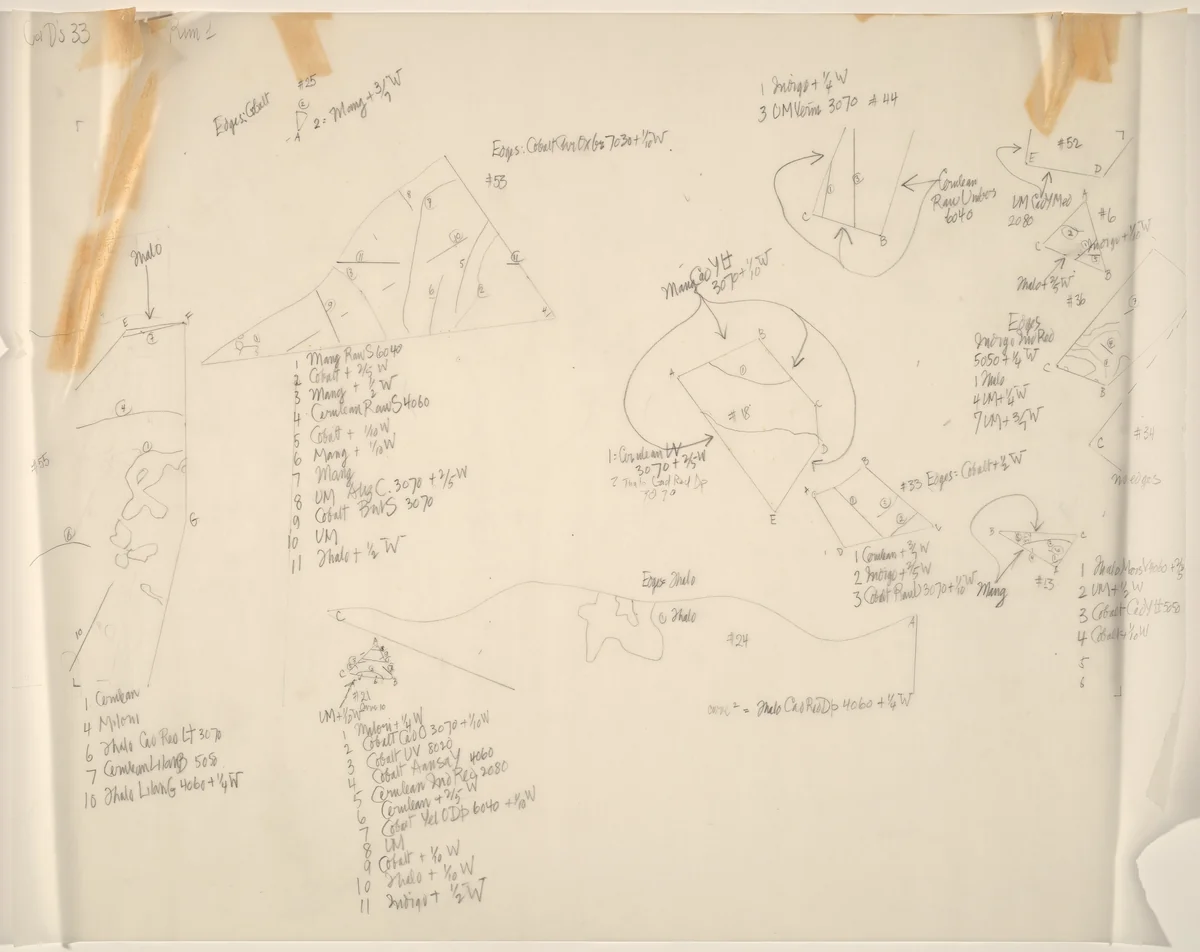 Run 1
#25
Edges: Cobalt
E
A
2 = Mang + 3/2 W
1 Indigo + 1/4 W
3 UM Verm 3070 #44
C
B
1
3
Cerulean
Raw Umber
6040
#52
E
D
UM Cad Y Med
2080
A
#6
C
2
B
Indigo + 1/10 W
Thalo + 2/5 W
#36
Edges
Indigo Ind Red
5050 + 1/4 W
1 Thalo
4 UM + 1/4 W
7 UM + 3/5 W
C
B
C
#34
no edges
#53
8
9
10
11
13
5
6
2
9
4
1 Mang Raw S 6040
2 Cobalt + 2/5 W
3 Mang + 1/2 W
4 Cerulean Raw S 4060
5 Cobalt + 1/10 W
6 Mang + 1/10 W
7 Mang
8 UM Aliz C. 3070 + 2/5 W
9 Cobalt Bnt S 3070
10 UM
11 Thalo + 1/2 W
Thalo
E
F
7
4
1
#55
6
G
10
L
1 Cerulean
4 Milori
6 Thalo Cad Red Lt 3070
7 Cerulean Liban B 5050
10 Thalo Liban G 4060 + 1/4 W
Mang Cad Y Lt
3070 + 1/10 W
A
B
1
C
#18
D
E
1 = Cerulean
3070 + 2/5 W
#33 Edges = Cobalt + 1/2 W
A
B
1
3
2
D
1 Cerulean + 3/5 W
2 Indigo + 2/5 W
3 Cobalt Raw U 3070 + 1/10 W
B
C
Mang
#13
2 UM + 1/2 W
3 Cobalt Cad Y Lt 5050
4 Cobalt + 1/10 W
5
6
Edges Thalo
C
1 Thalo
#24
A
2 = Thalo Cad Red Dp 4060 + 1/4 W
A
C
B
#21
1 Milori + 1/4 W
2 Cobalt Cad O 3070 + 1/10 W
3 Cobalt UV 8020
4 Cobalt Aansa Y 4060
5 Cerulean Ind Red 2080
6 Cerulean + 2/5 W
7 Cobalt Yel O Dp 6040 + 1/10 W
8 UM
9 Cobalt + 1/10 W
10 Thalo + 1/10 W
11 Indigo + 1/2 W